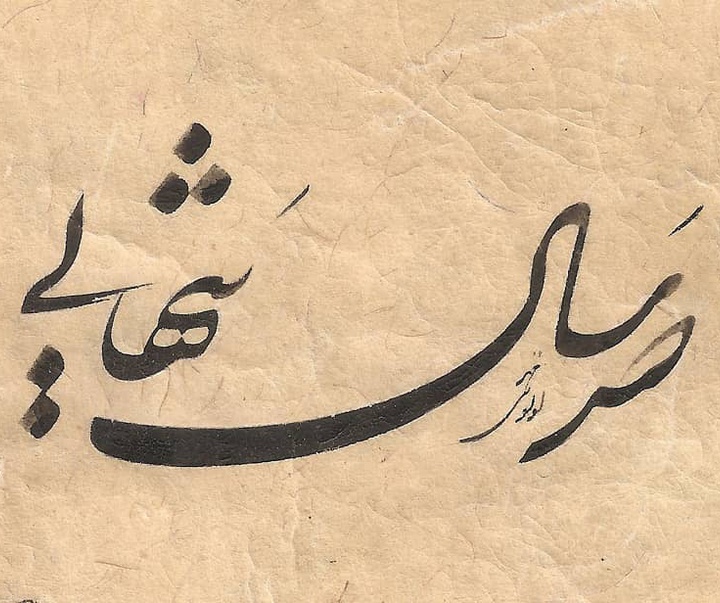 صد سال تنهایی